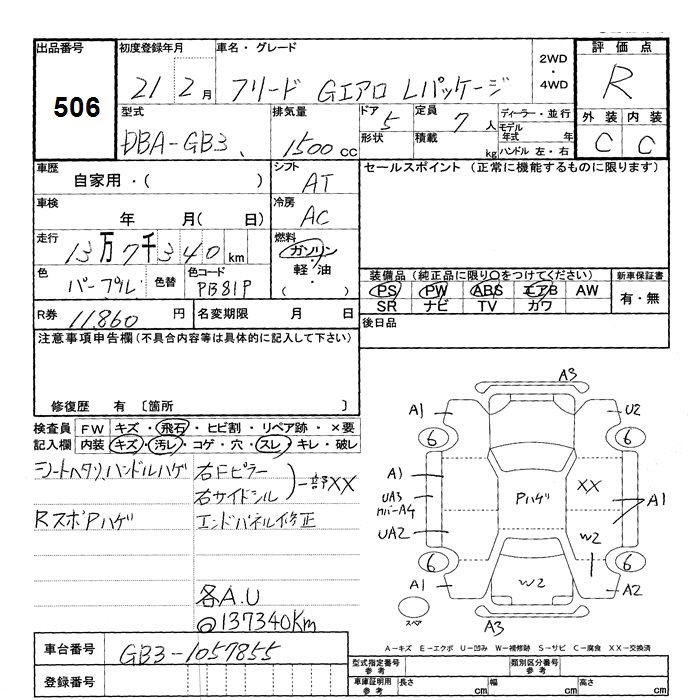 出品番号
506
初度登録年月
21 2月
車名・グレード
フリード Gエアロ Lパッケージ
2WD
・
4WD
評価点
R
外装 内装
C C
型式
DBA-GB3
排気量
1500cc
ドア
5
形状
定員
7人
積載
kg
ディーラー・並行
モデル年式 年
ハンドル 左・右
車歴
自家用・( )
シフト
AT
車検
年 月( 日)
冷房
AC
走行
13万7千340km
燃料
ガソリン
・
軽油
( ・ )
色
パープル
色替
色コード
PB81P
セールスポイント (正常に機能するものに限ります)
装備品 (純正品に限り○をつけてください)
PS PW ABS エアB AW
SR ナビ TV カワ
新車保証書
有・無
R券
11,860円
名変期限 月 日
後日品
注意事項申告欄(不具合内容等は具体的に記入して下さい)
修復歴 有 〔箇所 〕
検査員記入欄
FW キズ・飛石・ヒビ割・リペア跡・×要
内装 キズ・汚レ・コゲ・穴・スレ・キレ・破レ
シートヘタリ、ハンドルハゲ
Rスポ Pハゲ
右Fピラー
右サイドシル
XX
エンドパネル修正
各A.U
@137340Km
A3
A1
U2
6
6
A1
UA3
カバーA4
UA2
Pハゲ
XX
A1
W2
6
6
A1
W2
A2
スペア
A3
A-キズ E-エクボ U-凹み W-補修跡 S-サビ C-腐食 XX-交換済
車台番号
GB3-1057855
登録番号
型式指定番号
参考
類別区分番号
参考
車庫証明用
参考
長さ cm
幅 cm
高さ cm